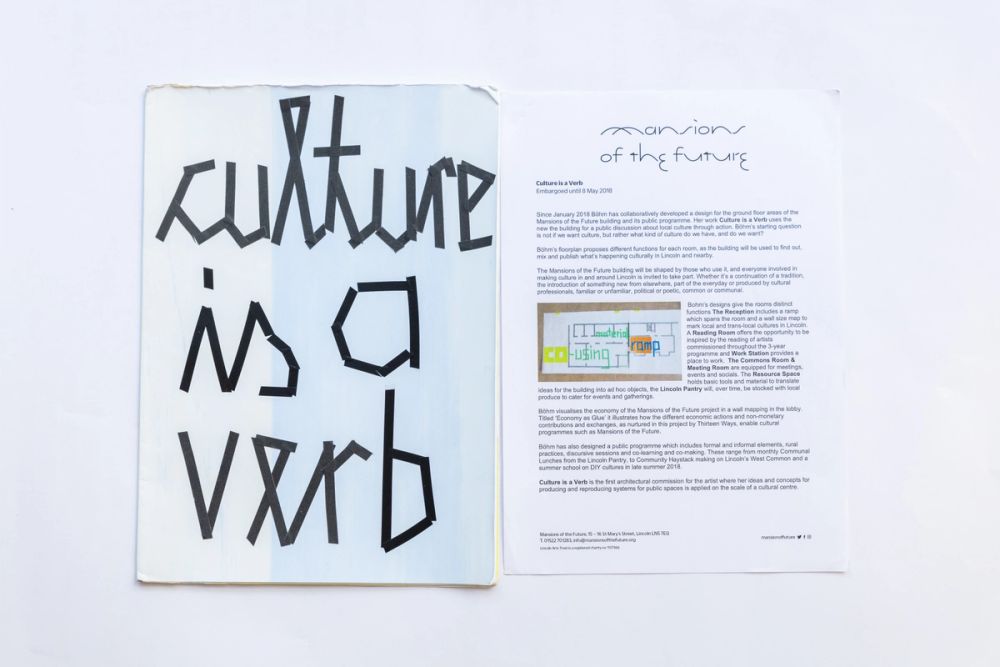 culture
is a
verb
mansions
of the future
Culture is a Verb
Embargoed until 8 May 2018
Since January 2018 Böhm has collaboratively developed a design for the ground floor areas of the
Mansions of the Future building and its public programme. Her work Culture is a Verb uses the
new the building for a public discussion about local culture through action. Böhm's starting question
is not if we want culture, but rather what kind of culture do we have, and do we want?
Böhm's floorplan proposes different functions for each room, as the building will be used to find out,
mix and publish what's happening culturally in Lincoln and nearby.
The Mansions of the Future building will be shaped by those who use it, and everyone involved in
making culture in and around Lincoln is invited to take part. Whether it's a continuation of a tradition,
the introduction of something new from elsewhere, part of the everyday or produced by cultural
professionals, familiar or unfamiliar, political or poetic, common or communal.
material
co-using
ramp
Bohm's designs give the rooms distinct
functions The Reception includes a ramp
which spans the room and a wall size map to
mark local and trans-local cultures in Lincoln.
A Reading Room offers the opportunity to be
inspired by the reading of artists
commissioned throughout the 3-year
programme and Work Station provides a
place to work. The Commons Room &
Meeting Room are equipped for meetings,
events and socials. The Resource Space
holds basic tools and material to translate
ideas for the building into ad hoc objects, the Lincoln Pantry will, over time, be stocked with local
produce to cater for events and gatherings.
Böhm visualises the economy of the Mansions of the Future project in a wall mapping in the lobby.
Titled 'Economy as Glue' it illustrates how the different economic actions and non-monetary
contributions and exchanges, as nurtured in this project by Thirteen Ways, enable cultural
programmes such as Mansions of the Future.
Böhm has also designed a public programme which includes formal and informal elements, rural
practices, discursive sessions and co-learning and co-making. These range from monthly Communal
Lunches from the Lincoln Pantry, to Community Haystack making on Lincoln's West Common and a
summer school on DIY cultures in late summer 2018.
Culture is a Verb is the first architectural commission for the artist where her ideas and concepts for
producing and reproducing systems for public spaces is applied on the scale of a cultural centre.
Mansions of the Future, 15 - 16 St Mary's Street, Lincoln LN5 7EQ
T. 01522 701283, info@mansionsofthefuture.org
Lincoln Arts Trust is a registered charity no
mansionsoffuture